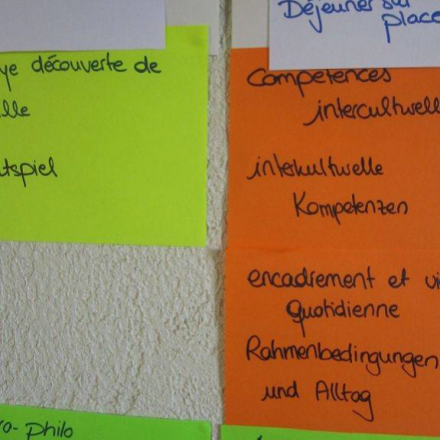 Déjeuner sur
place
ye découverte de
lle
tspiel
Compétences
interculturell
interkulturelle
Kompetenzen
encadrement et vi
quotidienne
Rahmenbedingungen
und Alltag
ra- Philo